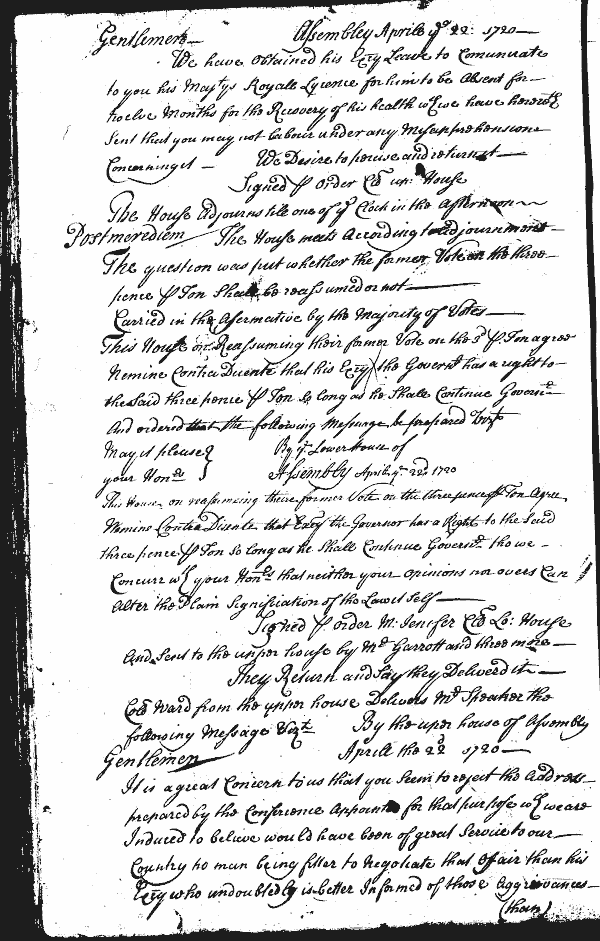 Gentlemen Assembley Aprile ye 22: 1720
We have obtained his Excy Leave to Comunicate
to you his Majtys Royale Lycence for him to be Absent for
twelve Months for the Recovery of his health wch we have herewth
Sent that you may not Labour under any Misapprehensions
Concerning it We Desire to peruse and return it
Signed P Order Clk upr House
The House Adjourns till one of ye Clock in the Afternoon
Postmerediem The House meets According to Adjournment
The question was put whether the former Vote on the three
pence P Ton Shall be reassumed or not
Carried in the Afermative by the Majority of Votes
This House on Reassuming their former Vote on the 3d P Ton agree
Nemine Contra Dicente that his Excy the Governr has a right to
the Said three pence P Ton So long as he Shall Continue Governr
And ordered that the following Message be prepared Vizt
May it please By ye Lower House of
your Honrs Assembly Aprile ye 22d 1720
This House on reassuming their former Vote on the three pence P Ton Agree
Nemine Contra Dicente that Excy the Governor has a Right to the Said
three pence P Ton So long as he Shall Continue Governr tho we
Concurr wth your Honrs that neither your opinions nor overs Can
Alter the Plain Signification of the Law it Self
Signed P order M: Jenifer Clk Lo: House
And Sent to the upper house by Mr Garrott and three more
They Return and Say they Deliverd it
Colo Ward from the upper house Delivers Mr Speaker the
following Message Vizt By the uper house of Assembly
Gentlemen Aprill the 22d 1720
It is a great Concern to us that you Seem to reject the Address
prepared by the Conference Appointed for that purpose wch we are
Induced to believe would have been of great Service to our
Country no man being fitter to Negotiate that Afair than his
Excy who undoubtedly is better Informed of those Aggrievances
(than)